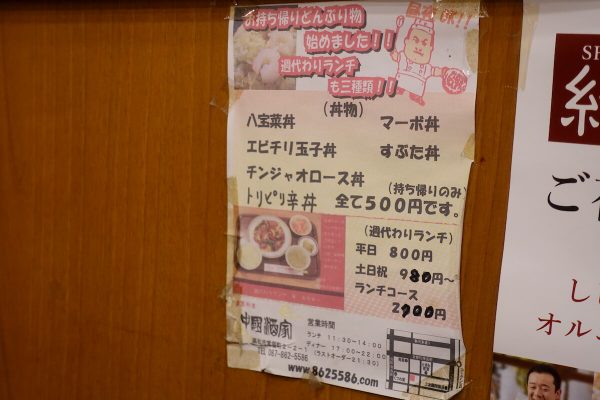 お持ち帰りどんぶり物
始めました!!
週代わりランチ
も三種類!!
(丼物)
八宝菜丼 マーボ丼
エビチリ玉子丼 すぶた丼
チンジャオロース丼 (持ち帰りのみ)
トリピリ辛丼 全て500円です。
(週代わりランチ)
平日 800円
土日祝 980円~
ランチコース
2900円
中國酒家
営業時間
ランチ 11:30~14:00
ディナー 17:00~22:00
(ラストオーダー21:30)
TEL 087-862-5586
www.8625586.com
ご
し
オル